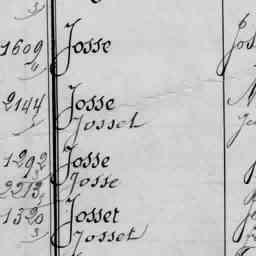 3
1609 Josse
6
2144 Josse
1 Josset
1292 Josse
3
2213 Josse
1320 Josset
3 Josset